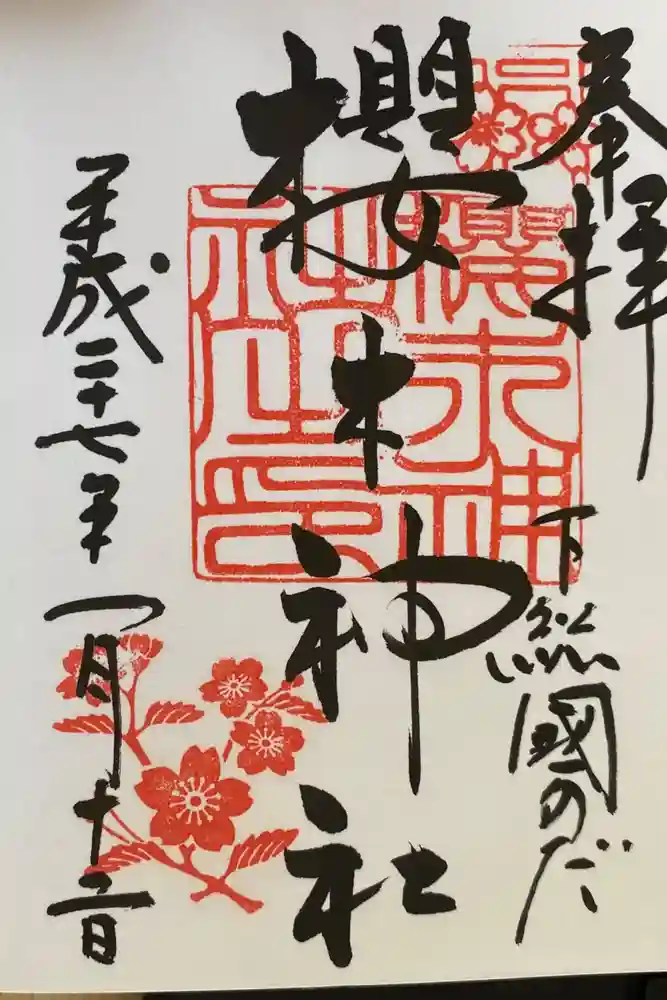 奉拝
下総國のだ
櫻木神社
平成二十七年一月十二日
櫻木神
社之印